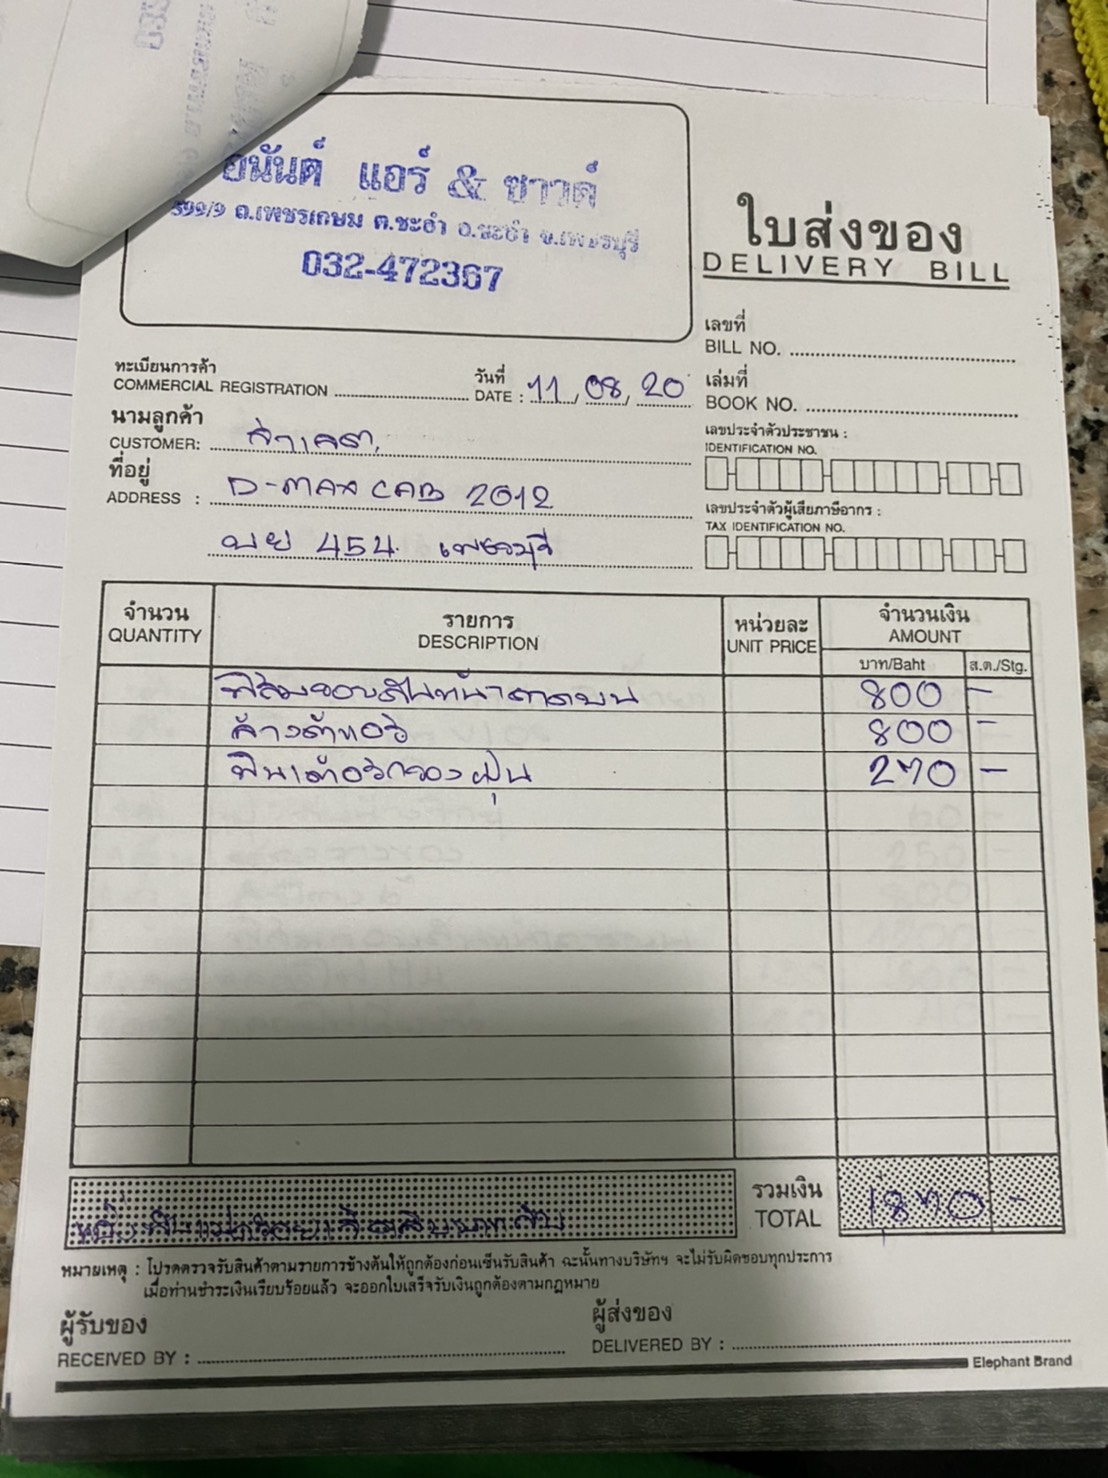 อนันต์ แอร์ & ซาวด์
399/9 ถ.เพชรเกษม ต.ชะอำ อ.ชะอำ จ.เพชรบุรี
032-472367
ใบส่งของ
DELIVERY BILL
เลขที่
BILL NO.
ทะเบียนการค้า
COMMERCIAL REGISTRATION
วันที่
DATE : 11, 08, 20
เล่มที่
BOOK NO.
นามลูกค้า
CUSTOMER:
เลขประจำตัวประชาชน :
IDENTIFICATION NO.
ที่อยู่
ADDRESS : D-MAX CAB 2012
454 เพชรบุรี
เลขประจำตัวผู้เสียภาษีอากร :
TAX IDENTIFICATION NO.
จำนวน
QUANTITY
รายการ
DESCRIPTION
หน่วยละ
UNIT PRICE
จำนวนเงิน
AMOUNT
บาท/Baht ส.ต./Stg.
ฟิล์มขอบสีนหน้าตาดบน 800 -
ล้างตู้แอร์ 800 -
ฟินเตอร์กรองฝุ่น 270 -
รวมเงิน
TOTAL 1870 -
หมายเหตุ : โปรดตรวจรับสินค้าตามรายการข้างต้นให้ถูกต้องก่อนเซ็นรับสินค้า ฉะนั้นทางบริษัทฯ จะไม่รับผิดชอบทุกประการ
เมื่อท่านชำระเงินเรียบร้อยแล้ว จะออกใบเสร็จรับเงินถูกต้องตามกฎหมาย
ผู้รับของ
RECEIVED BY :
ผู้ส่งของ
DELIVERED BY :
Elephant Brand